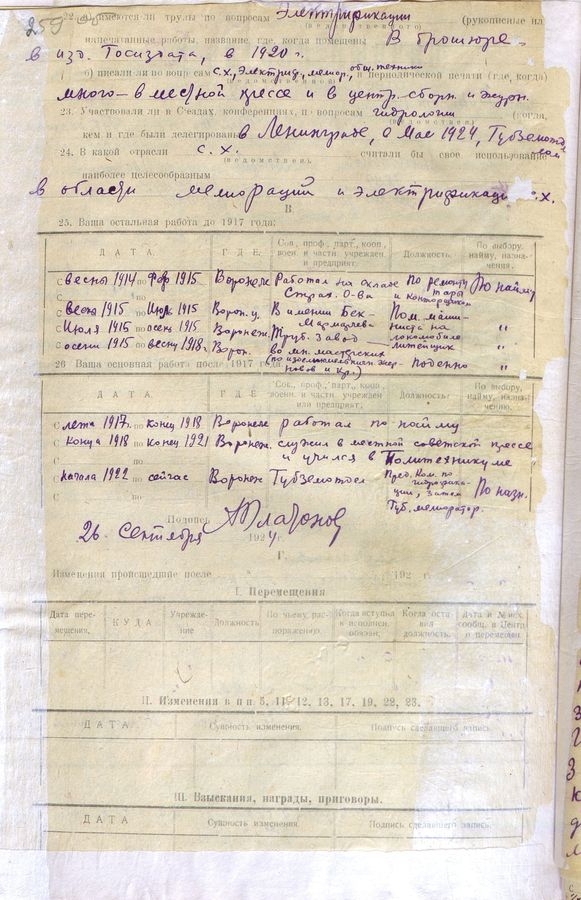 259
22. а) имеются ли труды по вопросам Электрификации (рукописные ил
(ведомственн.)
напечатанные работы, название, где, когда помещены В брошюре-
в изд. Госиздата, в 1920 г.
б) писали ли по вопросам с.х., Электриф., мелиор., общ. техники в периодической печати (где, когда)
много – в местной прессе и в центр. сборн. и журн.
23. Участвовали ли в С'ездах, конференциях, по вопросам гидрологии (когда,
кем и где были делегированы) в Ленинграде, в Мае 1924, Губземотде
лом
24. В какой отрасли с.х. считали бы свое использование
(ведомств.)
наиболее целесообразным
в области мелиорации и электрификации с.х.
В.
25. Ваша остальная работа до 1917 года:
ДАТА. ГДЕ. Сов., проф., парт., кооп., воен. и части учрежден. и предприят. Должность. По выбору, найму, назна- чения.
с весны 1914 по Фев 1915 Воронеж Работал на складе Страх. О-ва По ремонту тары и конторщиком По найму
с по
с Весна 1915 по Июль 1915 Ворон. у. В имении Бек-Мармарчева Пом. маши- ниста на локомобиле "
с Июля 1915 по осень 1915 Воронеж. Труб. завод — литейщик "
с осени 1915 по весну 1918 г. Ворон. во мн. мастерских (по изготовлению жер- новов и др.) – поденно "
26 Ваша основная работа после 1917 года
ДАТА ГДЕ Сов., проф., парт., кооп., военн. и части учрежден или предприят. Должность По выбору, найму, назна- чению.
с лета 1917 г. по конец 1918 Воронеж работал по найму
с конца 1918 по конец 1921 Воронеж. служил в местной советской прессе
с по и учился в Политехникуме "
с начала 1922 по сейчас Воронеж Губземотдел Пред. Ком. по гидрофика- ции, затем Губ. мелиоратор. По назн.
с по
Подпись А Платонов
26 Сентября 1924 г.
Г.
Изменения происшедшие после 192 г.
I. Перемещения
Дата пере- мещения. КУДА Учрежде- ние Должность По чьему рас- поряжению. Когда вступил в исполнен. обязан. Когда оста- вил должность. Дата и № исх. сообщ. в Центр о перемещен.
II. Изменения в п п 5, 11, 12, 13, 17, 19, 22, 23.
ДАТА Сущность изменения. Подпись сделавшего запись
III. Взыскания, награды, приговоры.
ДАТА Сущность изменения. Подпись сделавшего запись.